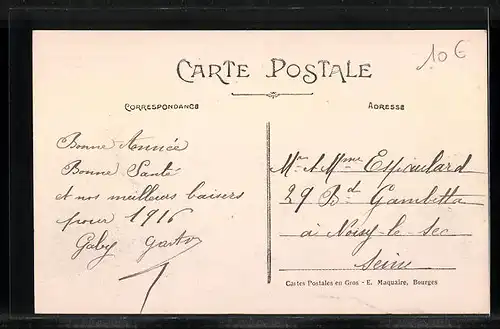 10€
CARTE POSTALE
CORRESPONDANCE
ADRESSE
Bonne Année
Bonne Santé
et nos meilleurs baisers
pour 1916
Gaby Gaston
Mr et Mme Espinlard
29 Bd Gambetta
à Noisy-le-Sec
Seine
Cartes Postales en Gros - E. Maquaire, Bourges